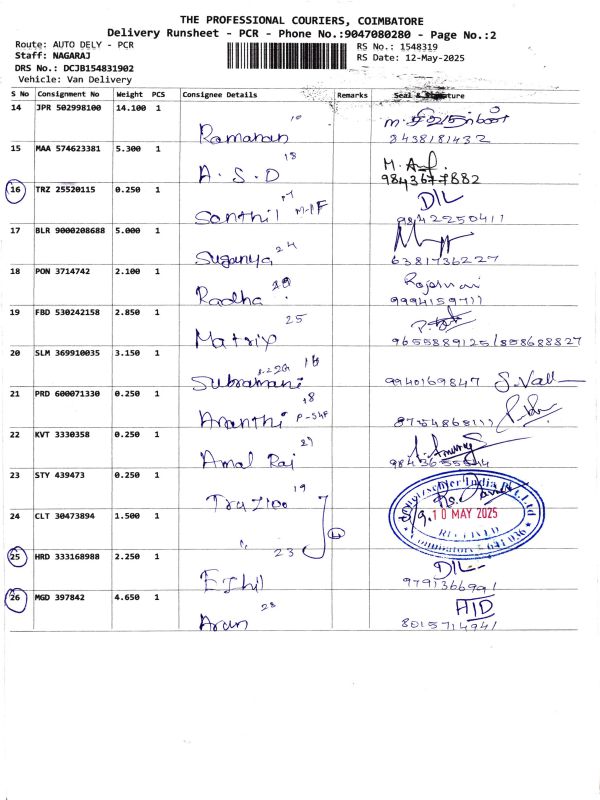 THE PROFESSIONAL COURIERS, COIMBATORE
Delivery Runsheet - PCR - Phone No.:9047080280 - Page No.:2
Route: AUTO DELY - PCR
RS No.: 1548319
Staff: NAGARAJ
RS Date: 12-May-2025
DRS No.: DCJB154831902
Vehicle: Van Delivery
S No Consignment No Weight PCS Consignee Details Remarks Seal & Signature
14 JPR 502998100 14.100 1
10
Ramanan 8438181432
15 MAA 574623381 5.300 1
18
A.S.D 9843677882
16 TRZ 25520115 0.250 1 DIL
17
Santhil M-1F 9842250411
17 BLR 9000208688 5.000 1
24
Suganya 6381736227
18 PON 3714742 2.100 1
Radha 9994159711
19 FBD 530242158 2.850 1
25
Matrix 9655889125/858688827
20 SLM 369910035 3.150 1
Subramani 9940169847 S.Vall
21 PRD 600071330 0.250 1
18
Ananthi P-S4F 8754868111
22 KVT 3330358 0.250 1
Amal Raj
23 STY 439473 0.250 1
19
10 MAY 2025
RECEIVED
24 CLT 30473894 1.500 1
23
25 HRD 333168988 2.250 1 DIL
Ezhil 9791366991
26 MGD 397842 4.650 1 AID
23
Arun 8015714941